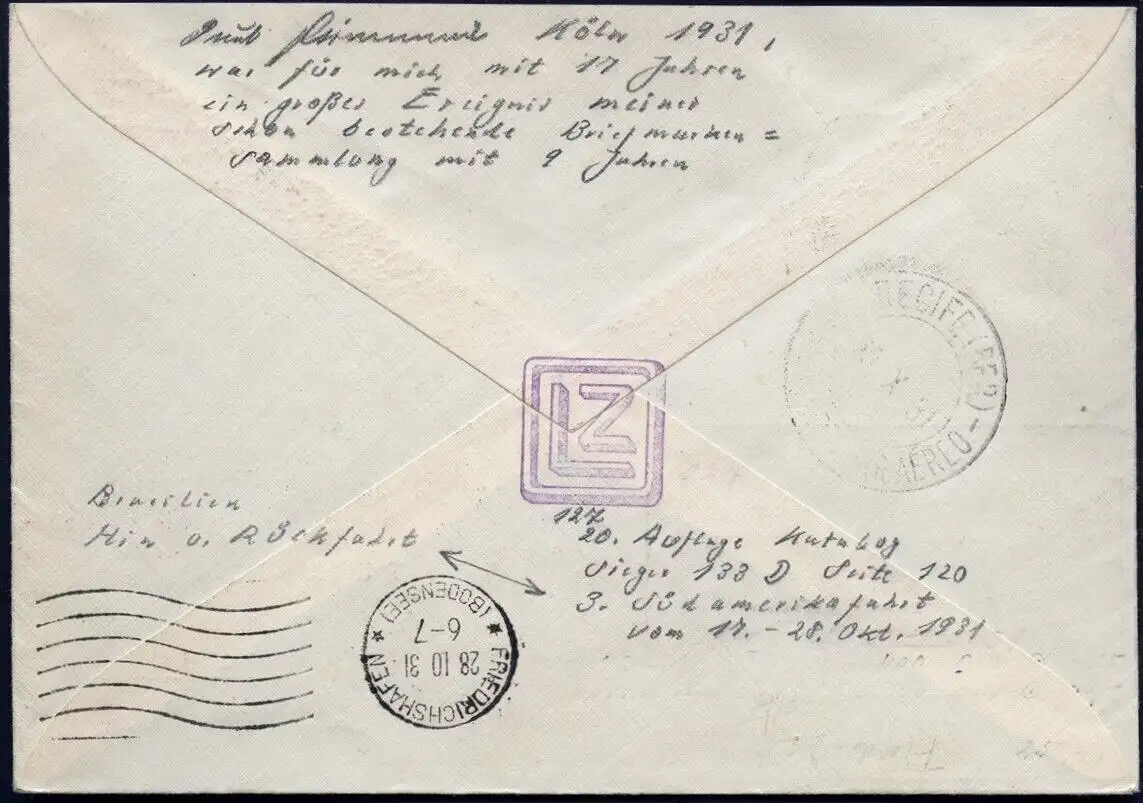 Köln 1931,
was für mich mit 17 Jahren
ein großes Ereignis meiner
schon bestehende Briefmarken=
Sammlung mit 9 Jahren
RECIFE (PE)
AEREO -
LZ
Brasilien
Hin u. Rückfahrt
127
20. Auflage Katalog
Sieger 133 D Seite 120
3. Südamerikafahrt
vom 17. - 28. Okt. 1931
FRIEDRICHSHAFEN
(BODENSEE)
28 10 31
6-7